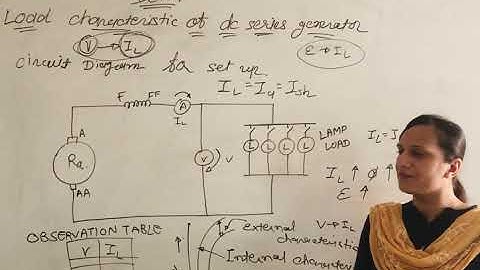 Load characteristic of dc series generator
V → IL
E → IL
circuit Diagram for set up
IL = Ia = Ish
F FF
A
IL
A
Ra
AA
V V
L L L L
LAMP
LOAD
IL ↑ φ ↑
E ↑
OBSERVATION TABLE
V IL
external
characteristic
V → IL
Internal